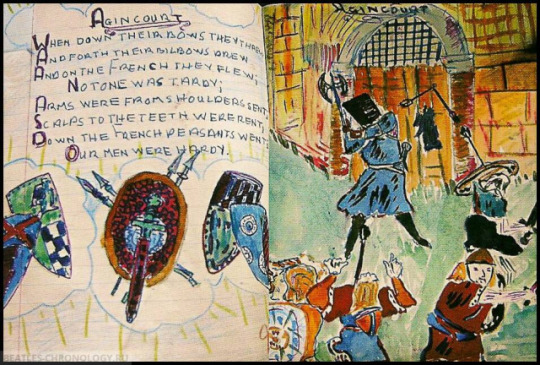 AGINCOURT
WHEN DOWN THEIR BOWS THEY THREW
AND FORTH THEIR BILBOWS DREW
AND ON THE FRENCH THEY FLEW;
NOT ONE WAS TARDY;
ARMS WERE FROM SHOULDERS SENT,
SCALPS TO THE TEETH WERE RENT,
DOWN THE FRENCH PEASANTS WENT
OUR MEN WERE HARDY.
AGINCOURT
BEATLES-CHRONOLOGY.RU